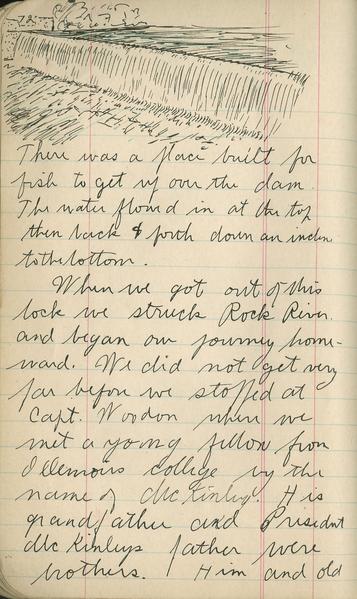 There was a place built for
fish to get up over the dam.
The water flowed in at the top
then back & forth down an inclin
to the bottom.
When we got out of this
lock we struck Rock River.
and began our journey home-
ward. We did not get very
far before we stopped at
Capt. Woodon where we
met a young fellow from
college by the
name of McKinley. His
grandfather and President
McKinleys father were
brothers. Him and old